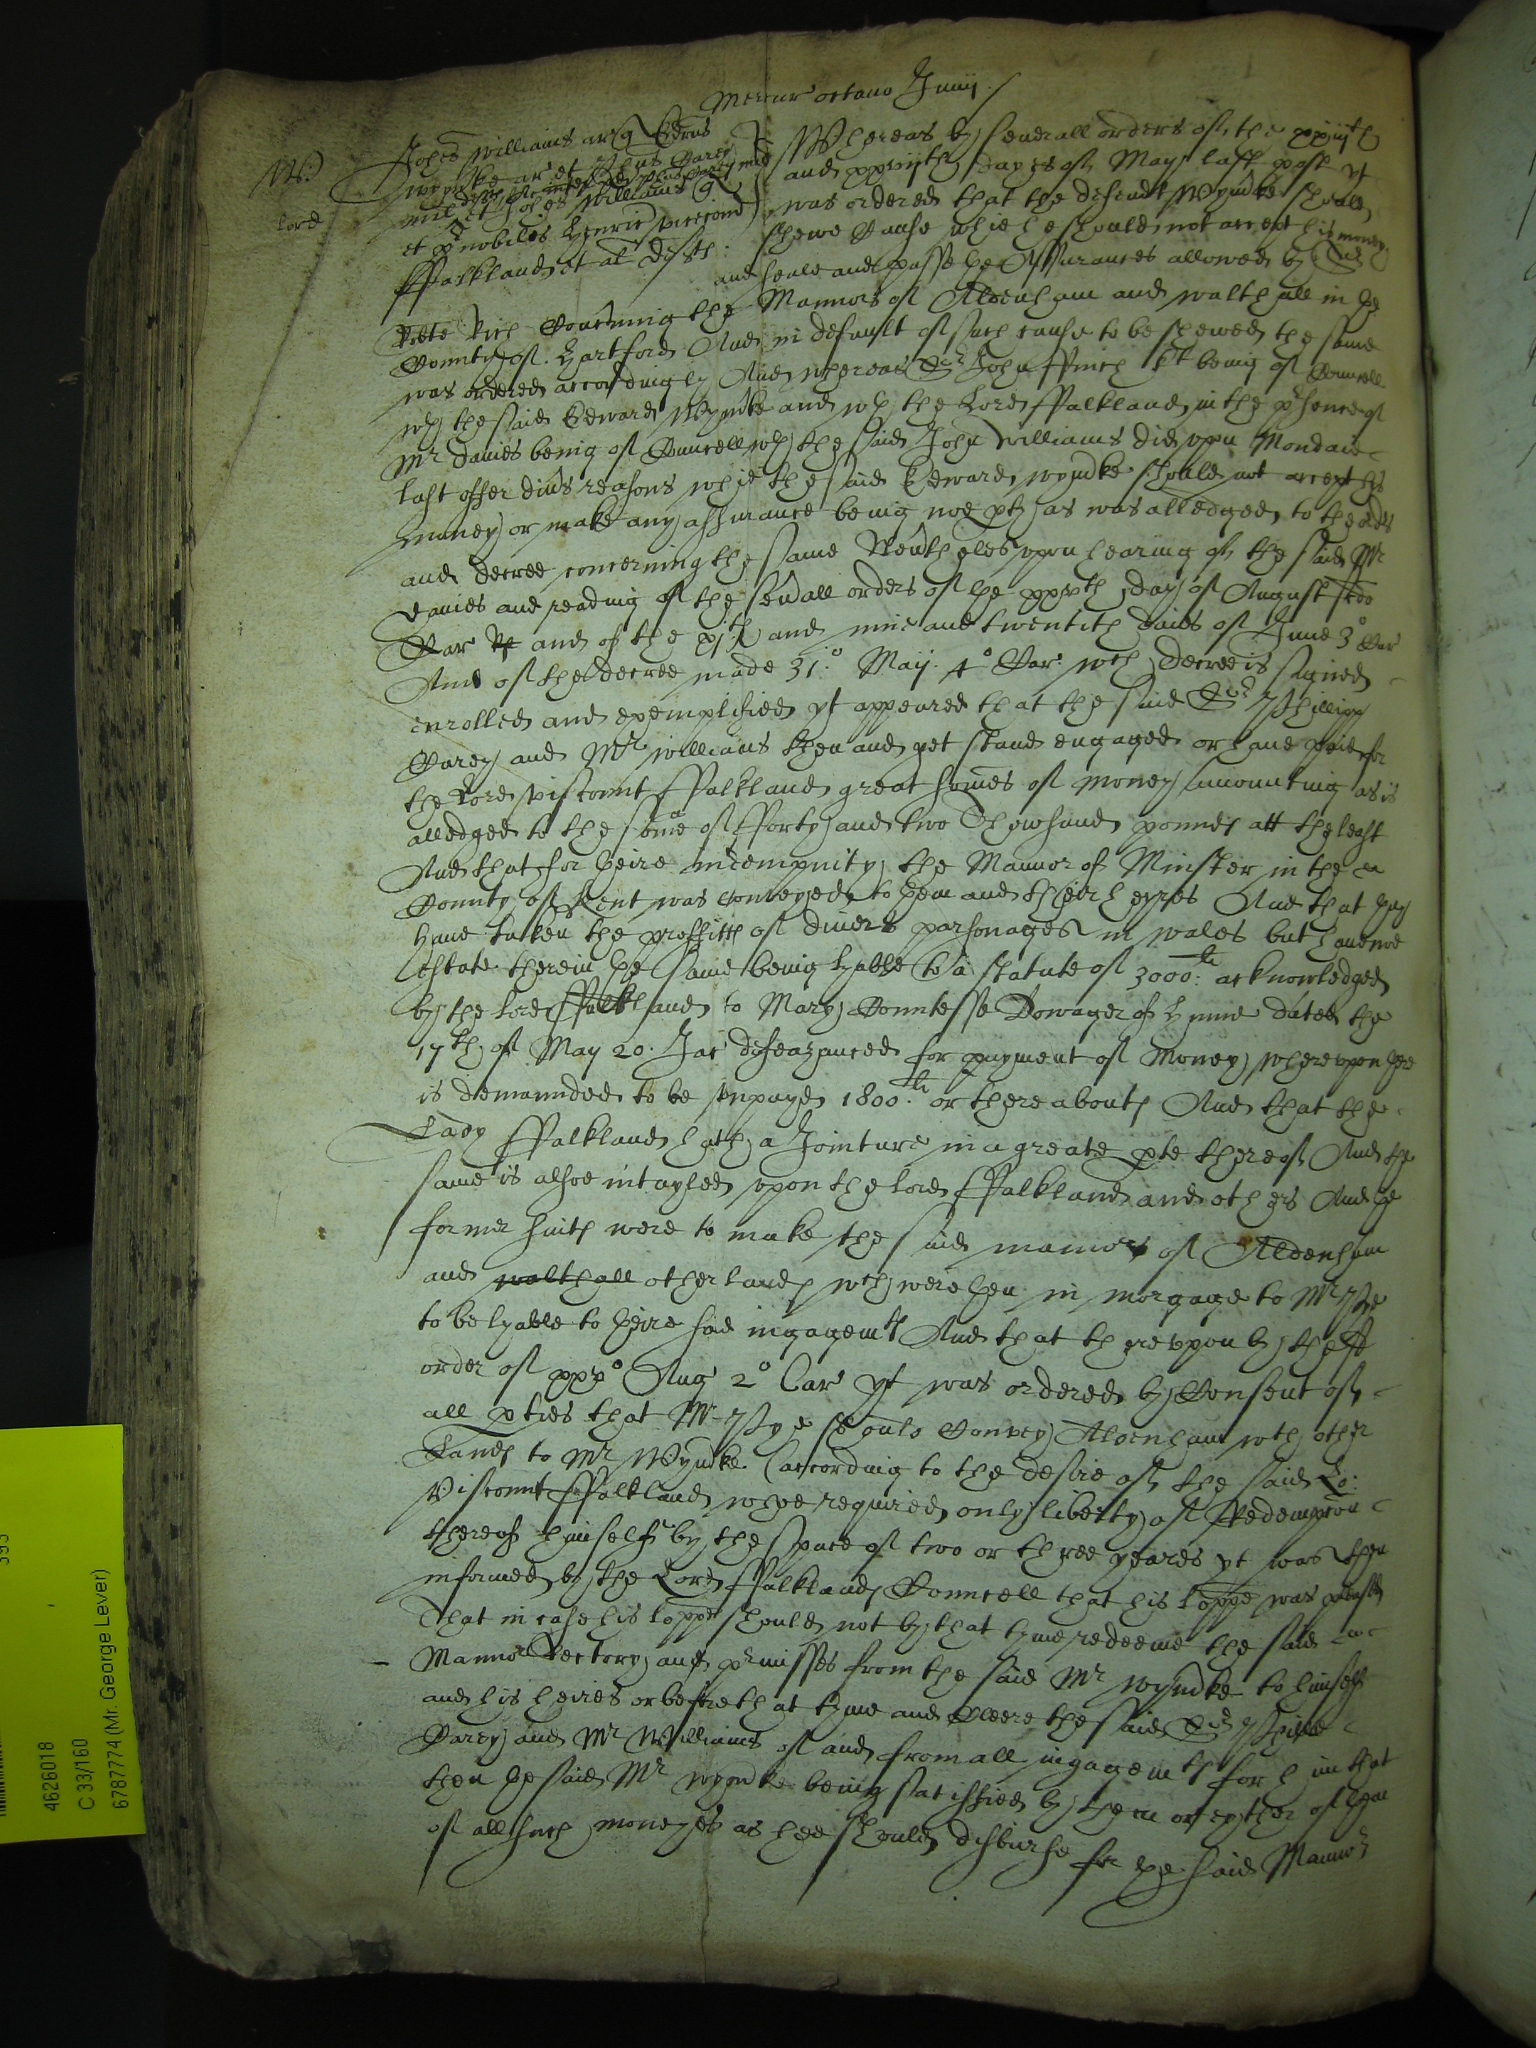 Mercur octavo Junij
W:)
Lord
Johes Williams ar q Edrus
Wymke ar et Phus Carey
mil et Johes Williams q
et pr nobilis Henric vicecom
ffalkland et al def
Whereas by severall orders of the xxiijth
and xxviijth dayes of May last past yt
was ordered that the defendt Wymke should
shewe Cause whie he should not accept his money
and seale and passe ye Assurances allowed by Sr
Robte Rich Concerning the Mannors of Aldenham and walthall in ye
County of Hartford And in default of such cause to be shewed the same
was ordered accordingly And whereas Sr John ffinch kt being of Councell
wth the said Edward Wymke and wth the Lord ffalkland in the presence of
Mr Davies being of Councell wth the said John Williams did vpon Mondaie
last offer divs reasons whie the said Edward wymke should not accept his
money or make any assurance being noe pty as was alledged to the orders
and decree concerning the same Nevtheles vpon hearing of the said Mr
Davies and reading of the sevall orders of ye xxxth day of August scdo
Car Rs and of the xjth and nine and twentith daies of June 3o Car
And of the decree made 31o May 4o Car wch decree is signed
enrolled and exemplified yt appeared that the said Sr Phillipp
Carey and Mr Williams then and yet stand engaged or have paid for
the Lord viscount ffalkland great somes of money amounting as is
alledged to the some of fforty and two Thowsand pounds att the least
And that for theire indempnity the Mannor of Minster in the
County of Kent was conveyed to them and their heyres And that they
have taken the proffitts of divers parsonages in wales but have noe
estate therein ye same being lyable to a statute of 3000li acknowledged
by the Lord ffalkland to Mary Countesse Dowager of dated the
17th of May 20 Jac defeazanced for payment of money wherevpon there
is demaunded to be vnpayd 1800li or thereabouts And that the
Lady ffalkland hath a Jointure in a greate pte thereof And the
same is alsoe intayled vpon the Lord ffalkland and others And ye
former suits were to make the said mannors of Aldenham
and walthall other lands wch were then in morgage to Mr Pye
to be lyable to theire said ingagemts And that therevpon by the
order of xxxo Aug 2o Car yt was ordered by Consent of
all pties that Mr Pye should Convey Aldenham wth other
Lands to Mr Wymke (according to the desire of the said Lo:
Viscount ffalkland whoe required only liberty of Redempcon
thereof himself by the space of two or three yeares yt was then
informed by the Lord ffalklands Councell that his Lopp was pleased
That in case his Lopp should not by that tyme redeeme the said
Mannor Rectory and pmisses from the said Mr wymke to himself
and his heires or before that tyme and cleere the said Sr Phillip
Carey and Mr Williams of and from all ingagemts for him that
then ye said Mr wymke being satisfied by them or eyther of them
of all such moneyes as hee should disburse for ye said Mannor
4626018
C 33/160
6787774 (Mr. George Lever)